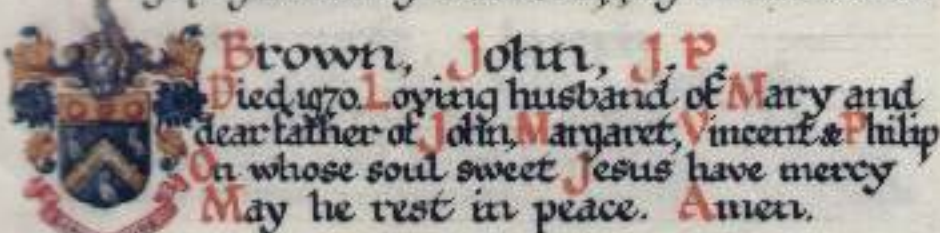 Brown, John, J.P.
Died 1970. Loving husband of Mary and
dear father of John, Margaret, Vincent & Philip
On whose soul sweet Jesus have mercy
May he rest in peace. Amen.